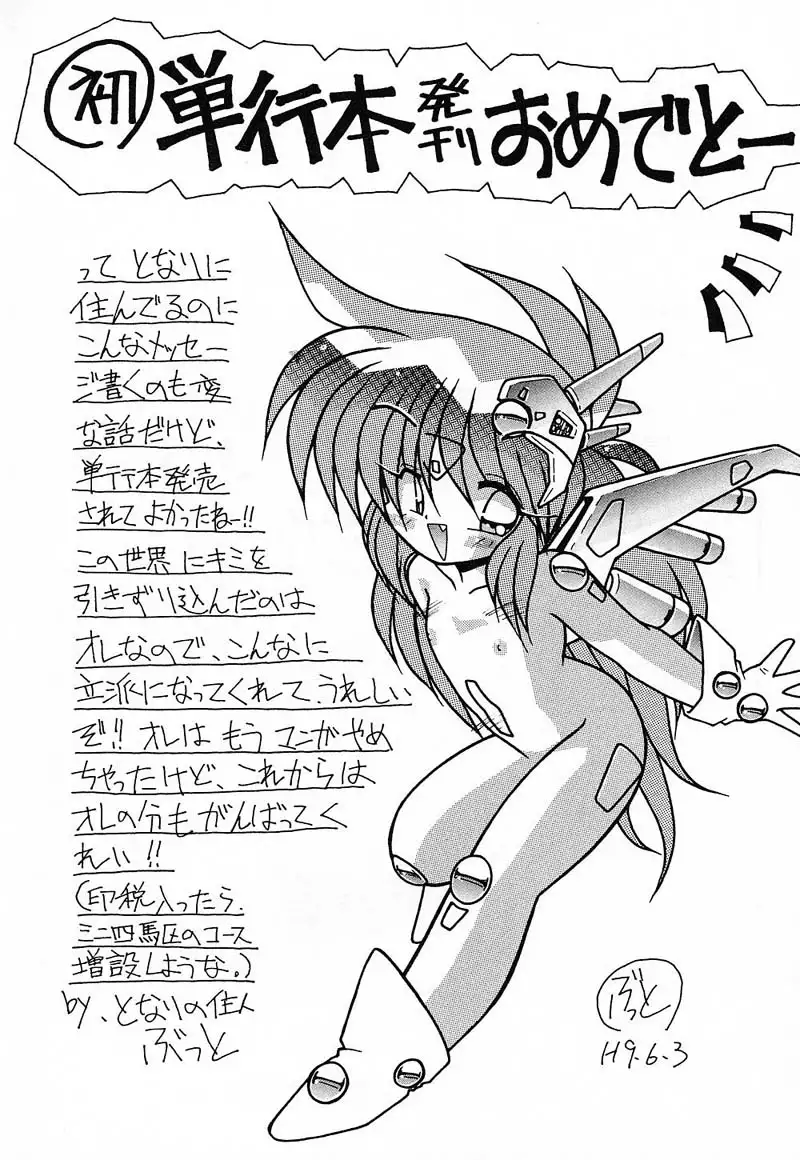 初単行本発刊おめでとー
って となりに
住んでるのに
こんなメッセー
ジ書くのも変
な話だけど、
単行本発売
されてよかったねー!!
この世界にキミを
引きずり込んだのは
オレなので、こんなに
立派になってくれて、うれしい
ぞ!! オレは もう マンガやめ
ちゃったけど、これからは
オレの分もがんばってく
れい!!
(印税入ったら、
ミニ四馬区のコース
増設しような。)
by、となりの住人
ぶっと
ぶっと
H9.6.3